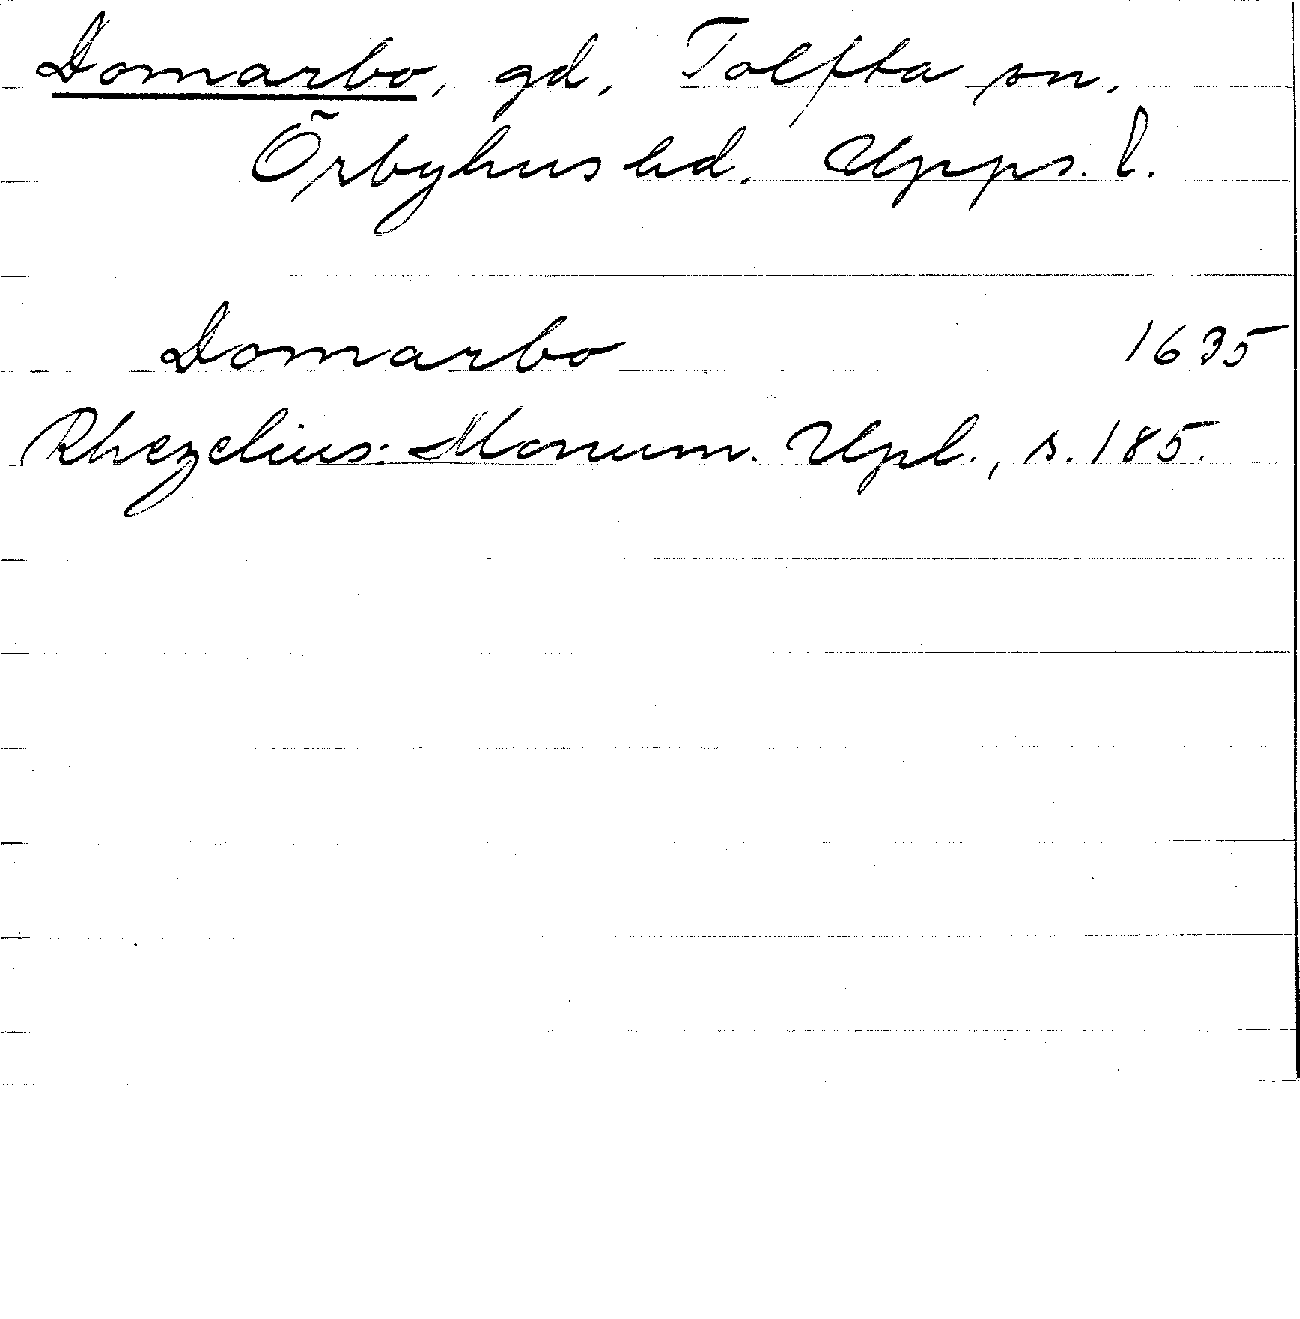 Domarbo, gd, Tolfta sn.
Örbyhus hd. Upps. l.
Domarbo 1635
Rhezelius: Monum. Upl., s. 185.